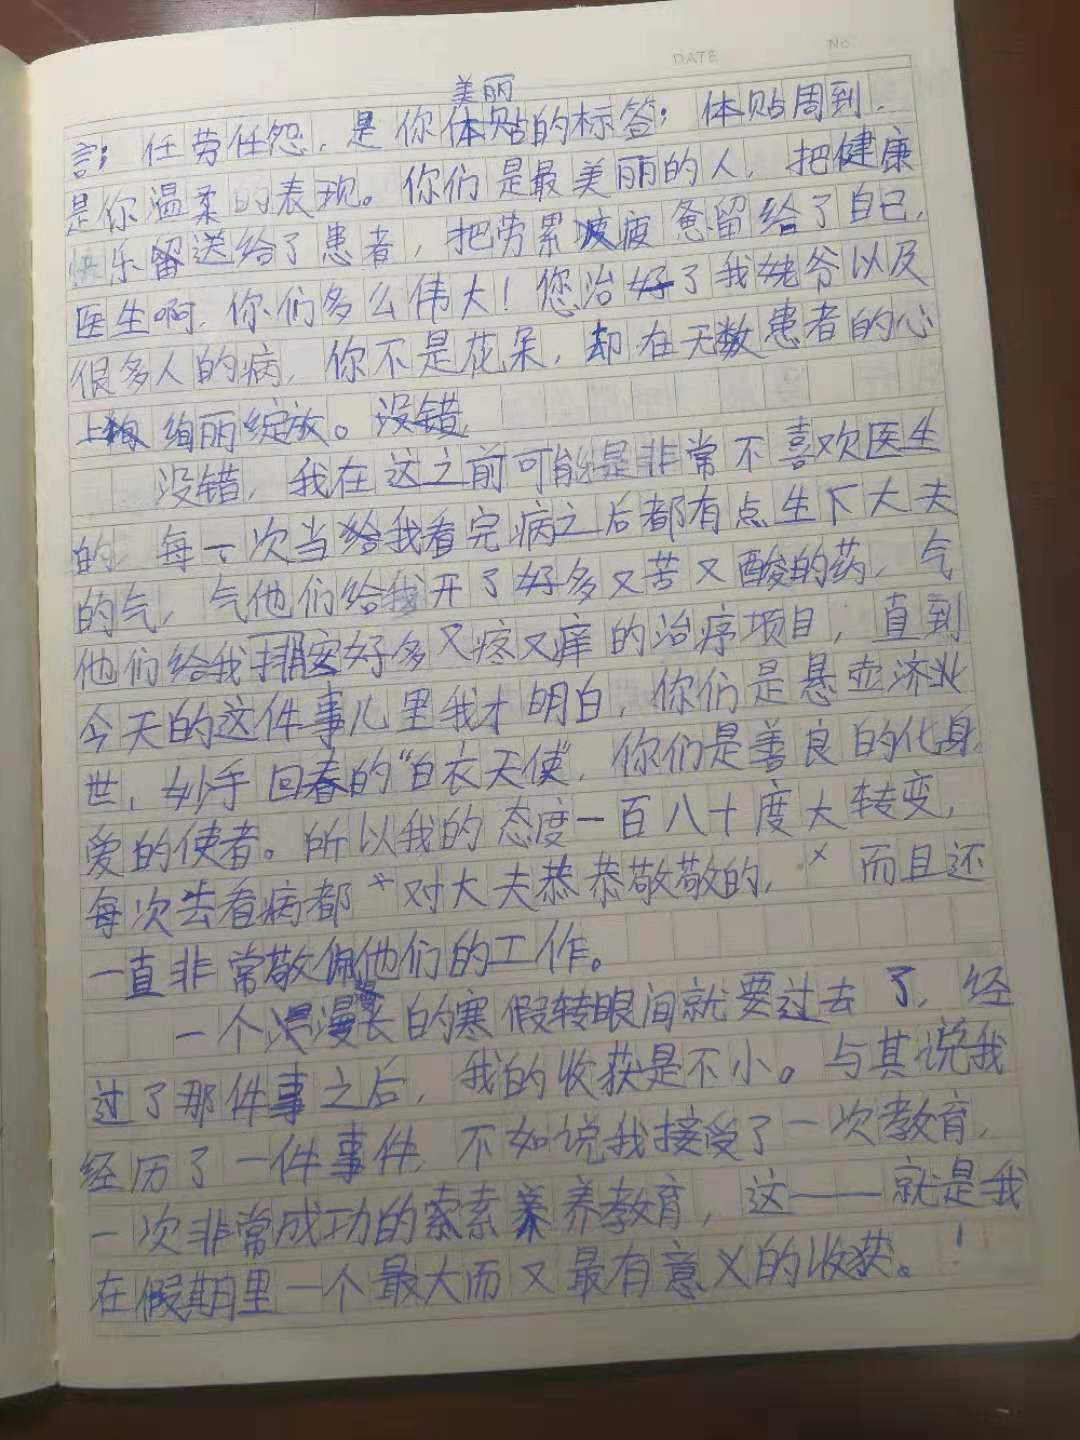 DATE No.
美丽
言；任劳任怨，是你体贴的标签；体贴周到，
是你温柔的表现。你们是最美丽的人，把健康
快乐留送给了患者，把劳累疲疲惫留给了自己，
医生啊，你们多么伟大！您治好了我姥爷以及
很多人的病，你不是花朵，却在无数患者的心
上绚丽绽放。没错，
没错，我在这之前可能是非常不喜欢医生
的，每一次当给我看完病之后都有点生下大夫
的气，气他们给我开了好多又苦又酸的药，气
他们给我排安好多又疼又痒的治疗项目，直到
今天的这件事儿里我才明白，你们是悬壶济业
世，妙手回春的“白衣天使”，你们是善良的化身，
爱的使者。所以我的态度一百八十度大转变，
每次去看病都对大夫恭恭敬敬的，而且还
一直非常敬佩他们的工作。
一个漫漫长的寒假转眼间就要过去了，经
过了那件事之后，我的收获是不小。与其说我
经历了一件事件，不如说我接受了一次教育，
一次非常成功的素素养养教育，这——就是我
在假期里一个最大而又最有意义的收获。！